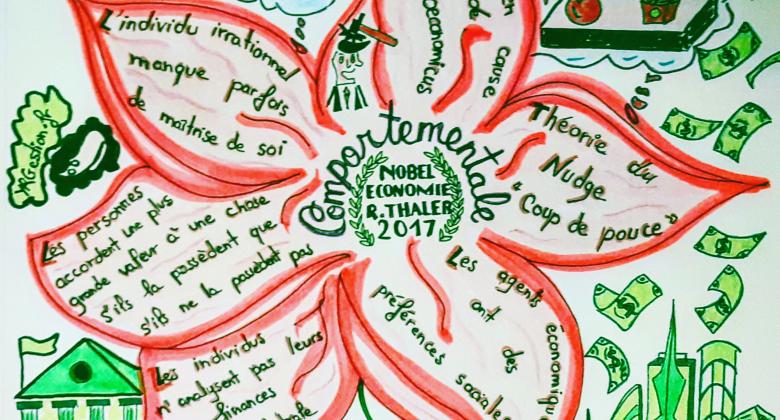 Comportementale
NOBEL
ECONOMIE
R. THALER
2017
L'individu irrationnel
manque parfois
de maîtrise de soi
en cause
de
oeconomicus
Théorie du
Nudge
"Coup de pouce"
Les personnes
accordent une plus
grande valeur à une chose
s'ils la possèdent que
s'ils ne la possèdent pas
Les individus
n'analysent pas leurs
finances
Les agents
économiqu
ont des
préférences
sociales